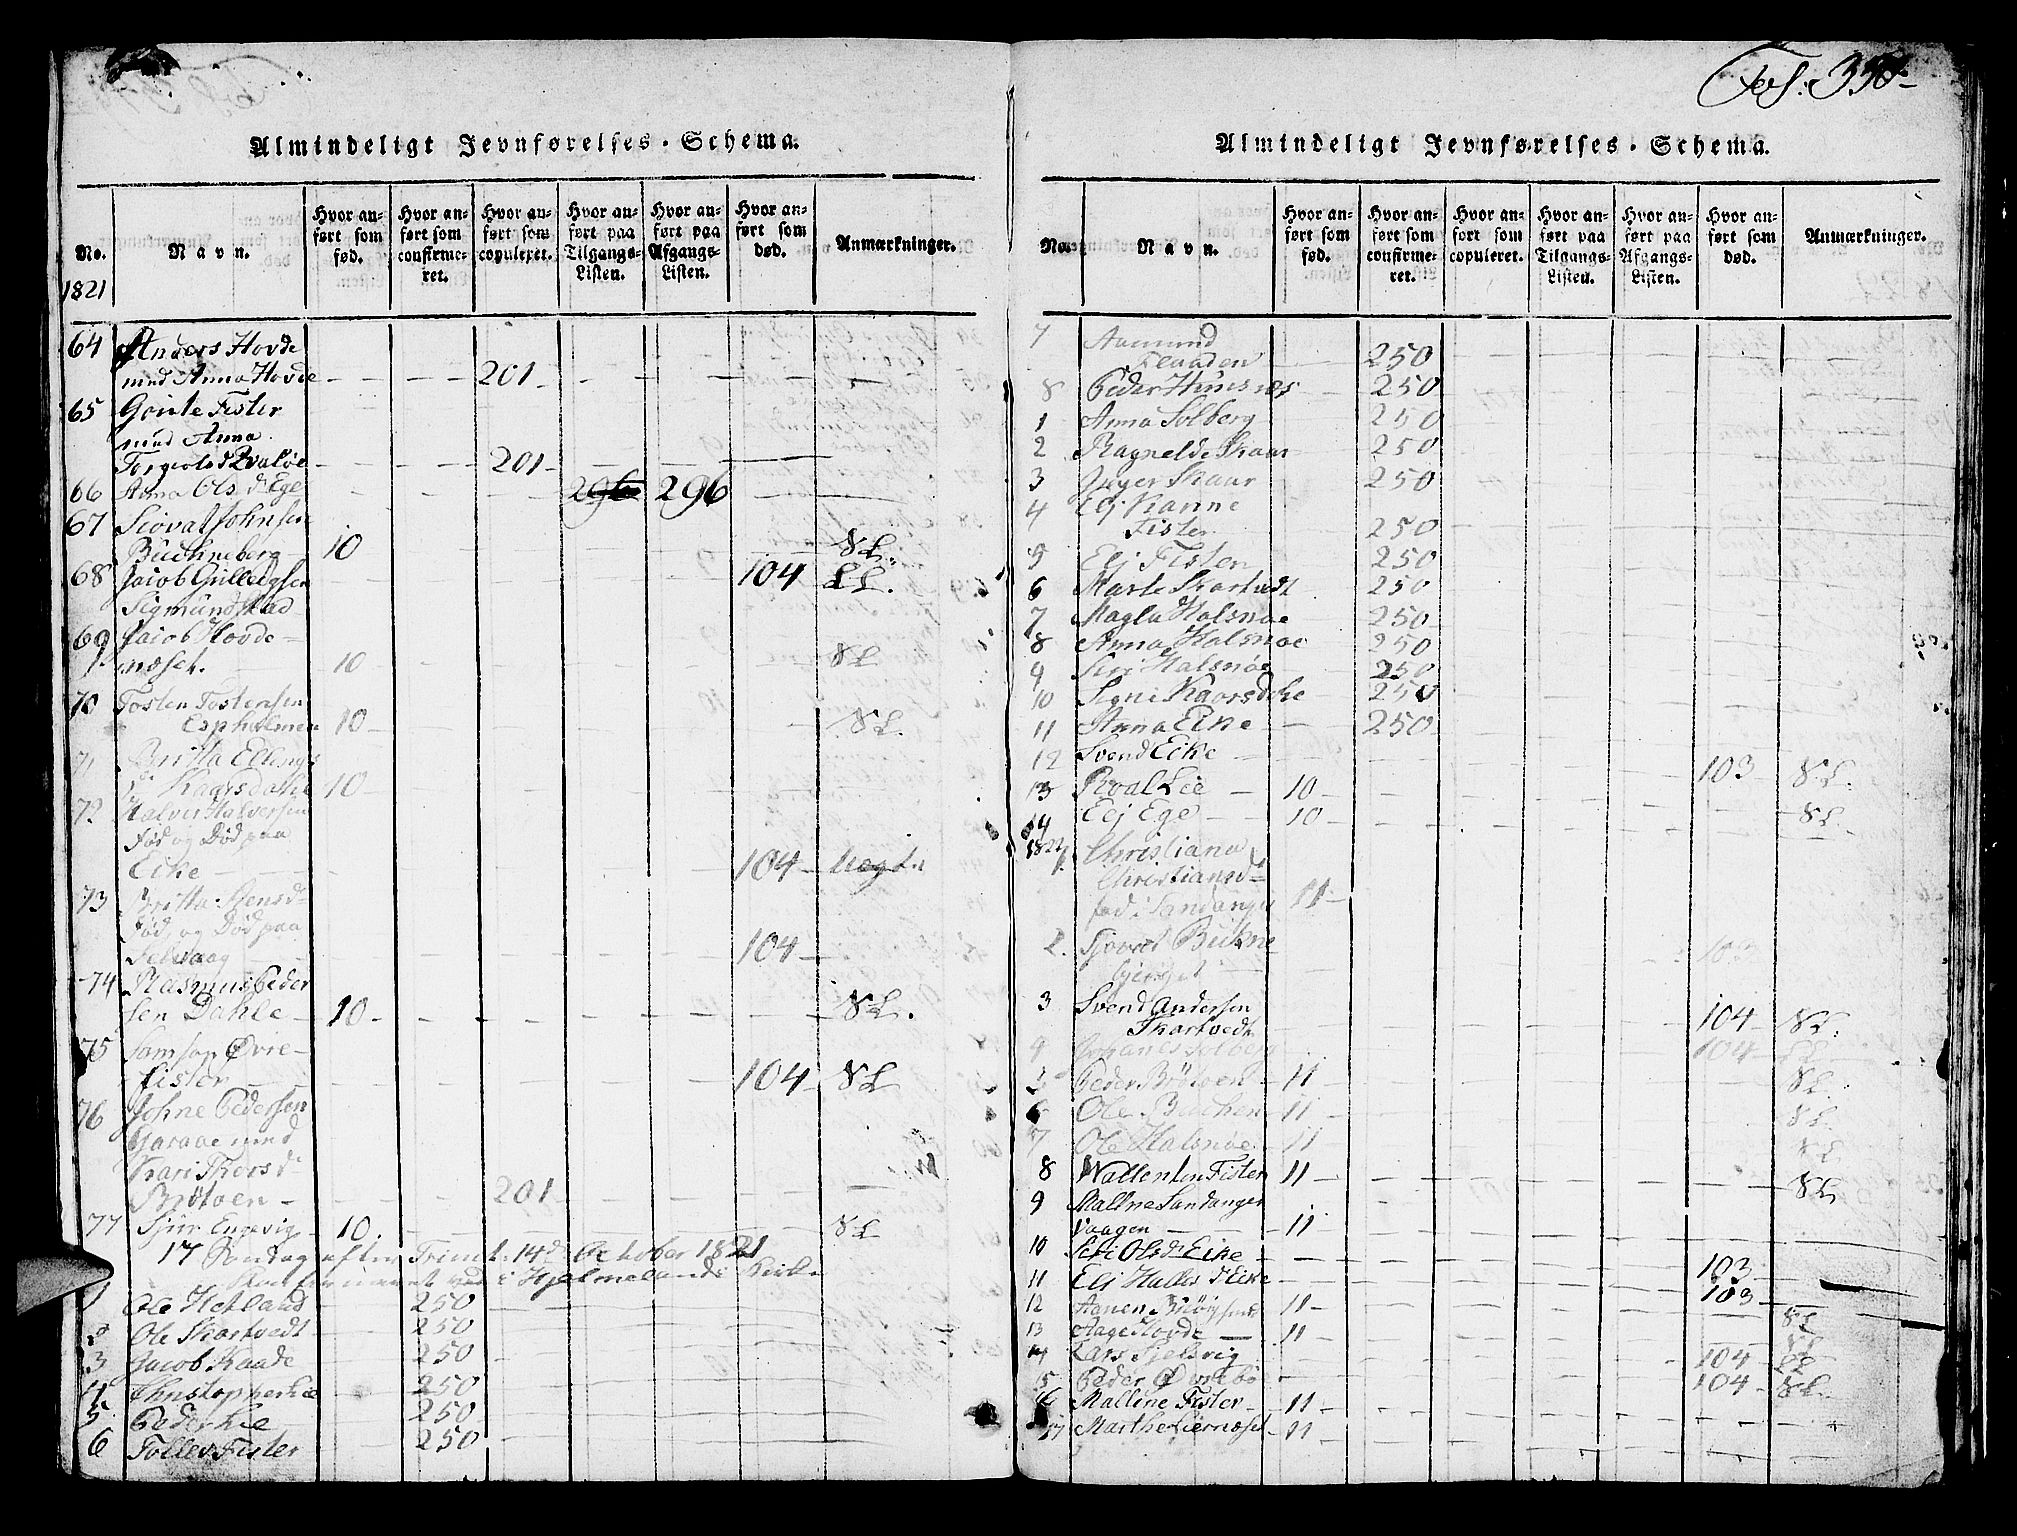 Fol: 350
Almindeligt Jevnførelses-Schema.
No. Navn. Hvor anført som fød. Hvor anført som confirmeret. Hvor anført som copuleret. Hvor anført paa Tilgangs-Listen. Hvor anført paa Afgangs-Listen. Hvor anført som død. Anmærkninger.
1821
64 Anders Hovde
med Anna Hovde - - - 201 - - - -
65 Gønte Fister
med Anna
Torgiels d Qvaløe - - - 201 - - -
66 Anna Ols d. Ege 296 296
67 Siovat Johnsen
Buchneberg 10 SL.
68 Jacob Gullichsen 104 LL.
Sigmundstad
69 Jacob Hovde-
næset. 10 SL
70 Tosten Tostensen
Espholmen 10 - SL.
71 Britta Ellings
d. Kaarsdahl 10
72 Halver Halversen
Fød og Død paa
Eike 104 -
73 Britta Stensd=
Fød, og Død paa
Selvaag 104 -
74 Rasmus Peder
sen Dahle - 10 - SL.
75 Samson Øvre-
Fister 104 - SL
76 Johne Pedersen
med
Kari Thors d
Brøtoen - 201
77 Sjur Engevig 10. SL
17 Søndag efter Trinit. 14d October 1821
i Hjelmelands Kirke
1 Ole Hetland 250
2 Ole Skartvedt 250
3 Jacob Raade 250
4 Christopher Lie 250
5 Peder Lie 250
6 Tollev Fister 250
Almindeligt Jevnførelses-Schema.
No. Navn. Hvor anført som fød. Hvor anført som confirmeret. Hvor anført som copuleret. Hvor anført paa Tilgangs-Listen. Hvor anført paa Afgangs-Listen. Hvor anført som død. Anmærkninger.
7 Aamund
Flaaden 250
8 Peder Huusnes 250
1 Anna Solberg 250
2 Ragnelde Skaar 250
3 Inger Skaar 250
4 Elj Kanne
Fister 250
5 Elj Fister 250
6 Marte Skartvedt 250
7 Magla Halsnøe 250
8 Anna Halsnøe 250
9 Siri Halsnøe 250
10 Signe Kaarsdahl 250
11 Anna Eike 250
12 Svend Eike 103 SL.
13 Roal Lie 10 -
14 Elj Ege - 10 - SL.
1822
1. Christiana
Christiansd=
fød i Sandanger 11 -
2. Sjovat Bukne
bjerget 103
3 Svend Andersen
Skartvedt 104 SL.
4 Johanes Solberg 104 LL
5 Peder Brøtoen 11 SL.
6 Ole Buchen 11 SL.
7 Ole Halsnøe 11 SL
8 Wallenten Fister 11 SL
9 Maline Sandanger
Vaagen 11
10 Siri Ols d Eike 103
11 Elj Halles d Eike 103
12 Aanen 11 SL
13 Aage Hovde 11 SL
14 Lars Tjelsvig 104 LL
15 Peder Øvrebø 104 SL.
16 Malline Fister 11
17 Marthe Liernæset 11